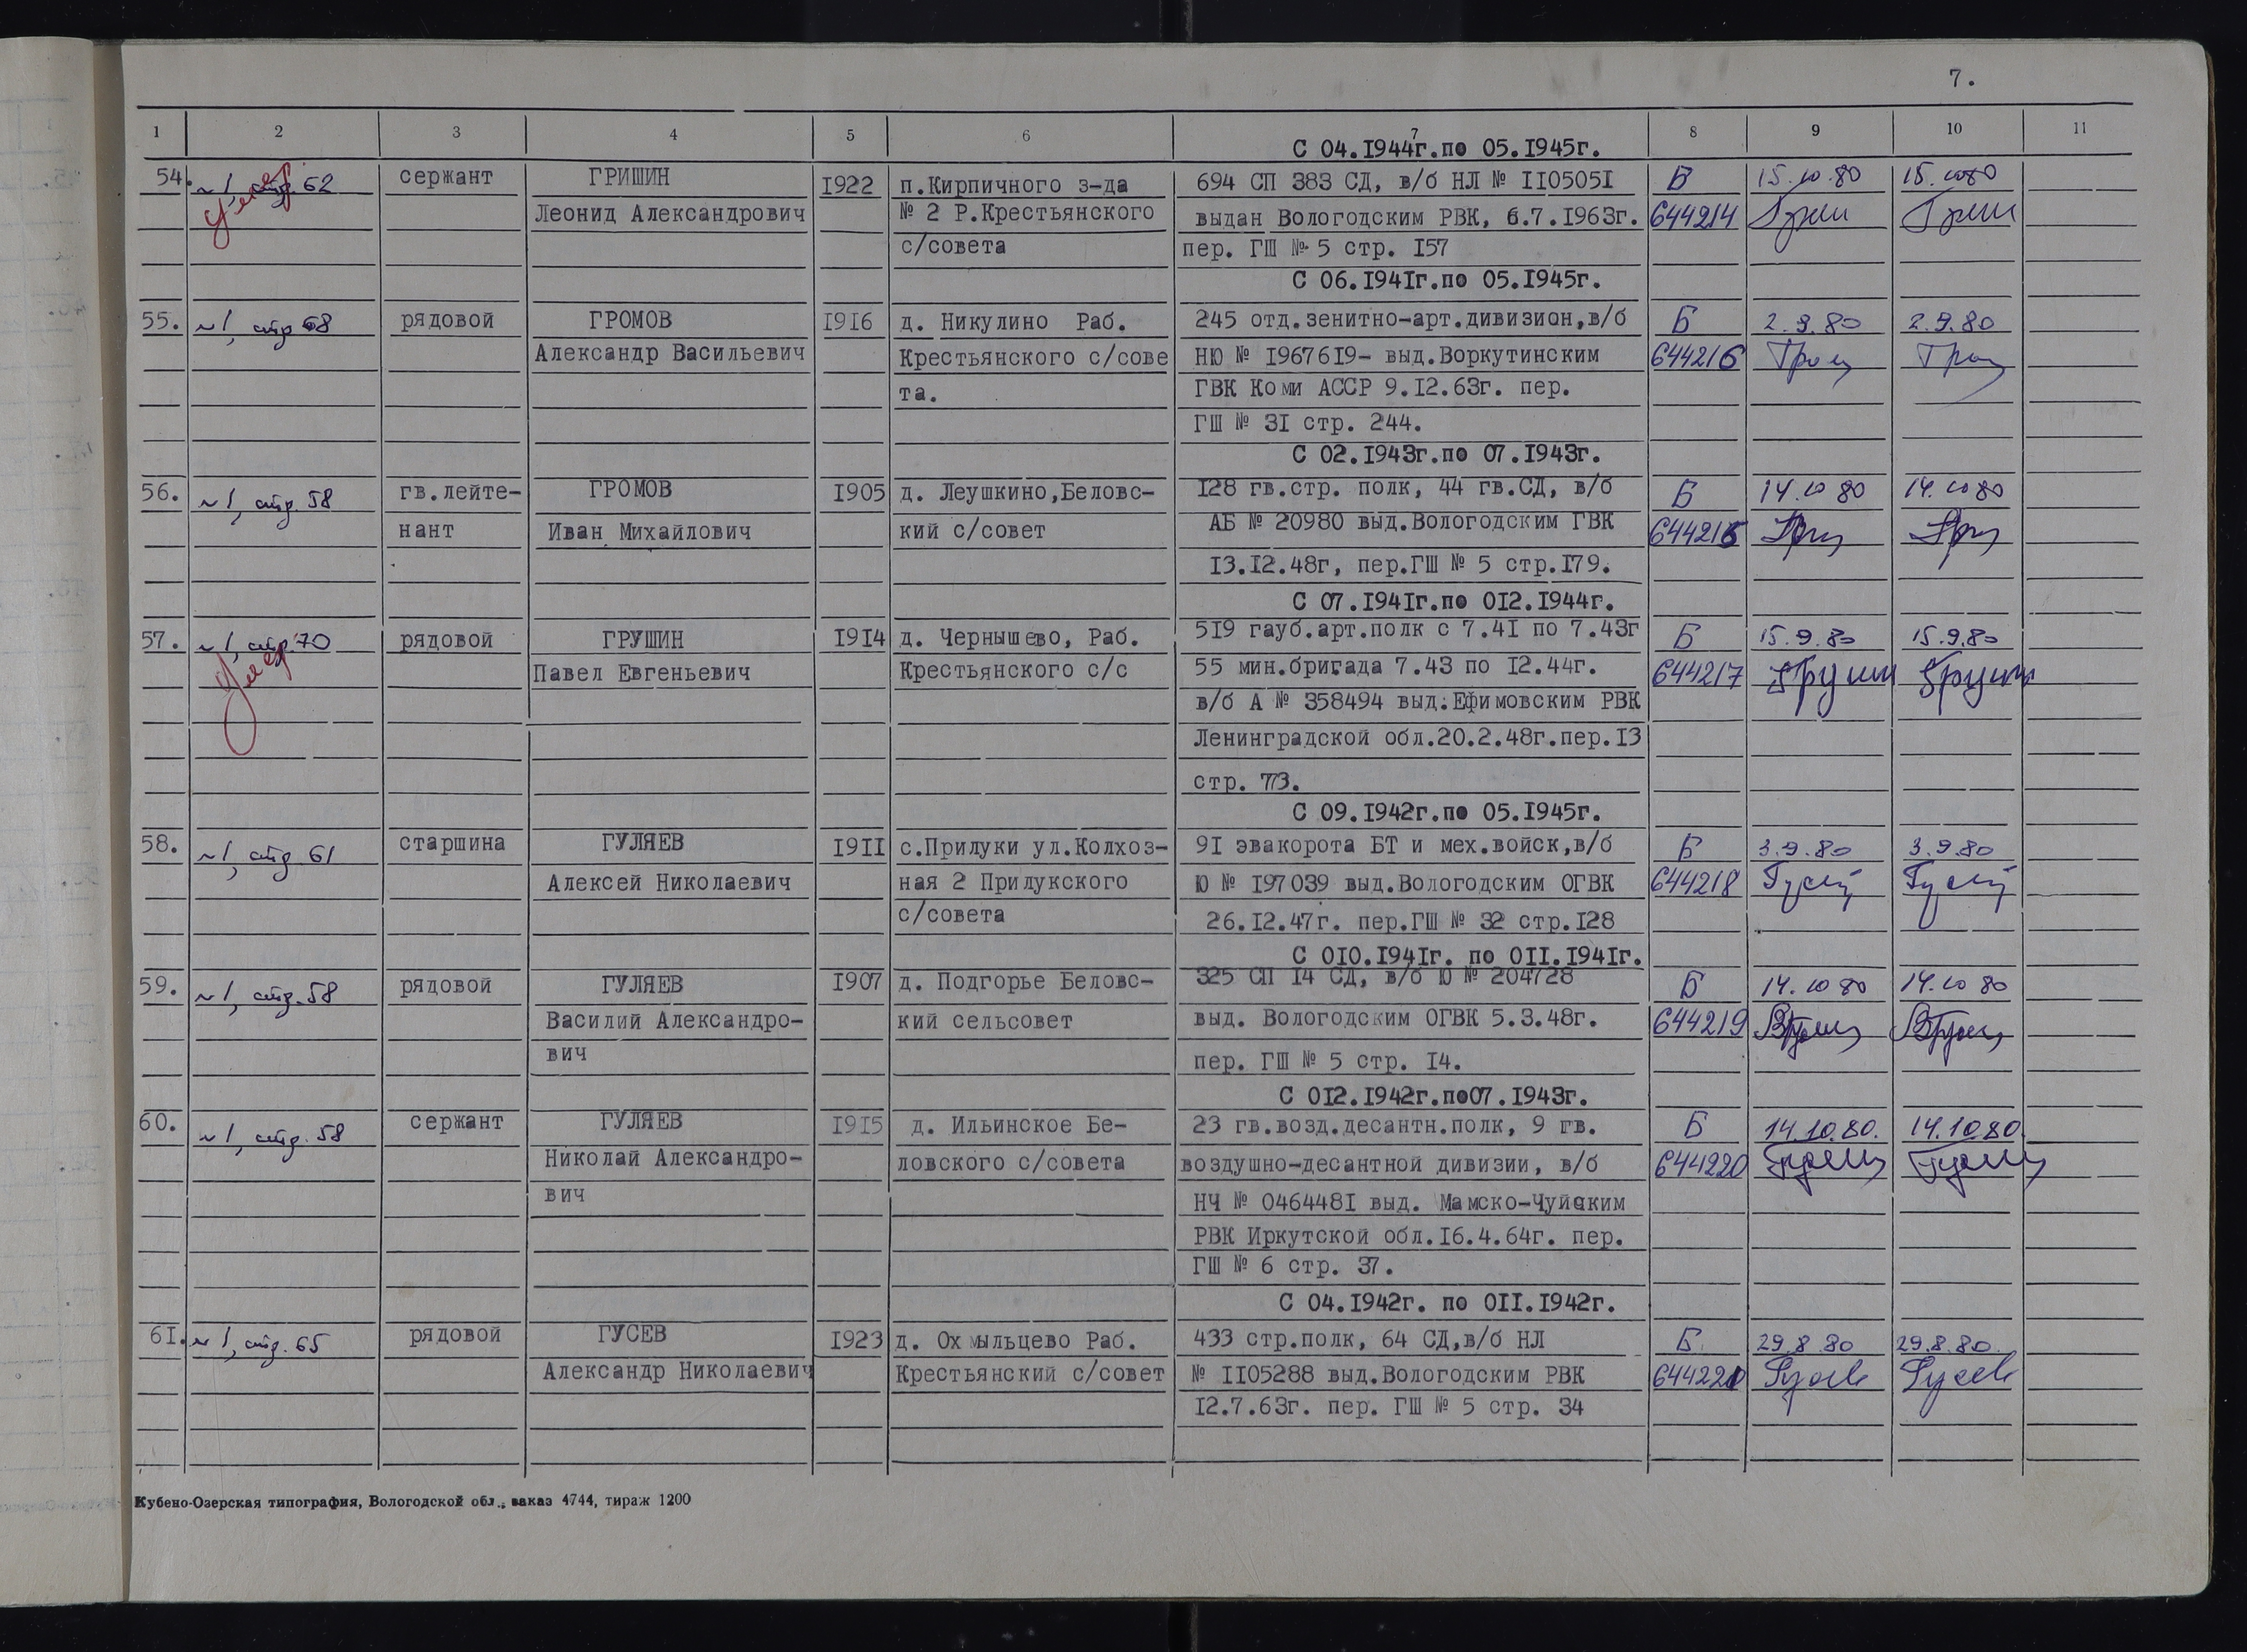 7.
1 2 3 4 5 6 7 8 9 10 11
С 04.1944г.по 05.1945г.
54. ~1, стр. 62 сержант ГРИШИН 1922 п.Кирпичного з-да 694 СП 383 СД, в/б НЛ № 1105051 Б 15.10.80 15.10.80
умер Леонид Александрович № 2 Р.Крестьянского выдан Вологодским РВК, 6.7.1963г. 644214
с/совета пер. ГШ № 5 стр. 157
С 06.1941г.по 05.1945г.
55. ~1, стр 68 рядовой ГРОМОВ 1916 д. Никулино Раб. 245 отд.зенитно-арт.дивизион,в/б Б 2.9.80 2.9.80
Александр Васильевич Крестьянского с/сове НЮ № 1967619- выд.Воркутинским
та. ГВК Коми АССР 9.12.63г. пер.
ГШ № 31 стр. 244.
С 02.1943г.по 07.1943г.
56. ~1, стр. 58 гв.лейте- ГРОМОВ 1905 д. Леушкино,Беловс- 128 гв.стр. полк, 44 гв.СД, в/б Б 14.10 80 14.10 80
нант Иван Михайлович кий с/совет АБ № 20980 выд.Вологодским ГВК
13.12.48г, пер.ГШ № 5 стр.179.
С 07.1941г.по 012.1944г.
57. ~1, стр. 70 рядовой ГРУШИН 1914 д. Чернышево, Раб. 519 гауб.арт.полк с 7.41 по 7.43г Б 15.9.80 15.9.80
умер Павел Евгеньевич Крестьянского с/с 55 мин.бригада 7.43 по 12.44г. 644217
в/б А № 358494 выд.Ефимовским РВК
Ленинградской обл.20.2.48г.пер.13
стр. 773.
С 09.1942г.по 05.1945г.
58. ~1, стр. 61 старшина ГУЛЯЕВ 1911 с.Прилуки ул.Колхоз- 91 эвакорота БТ и мех.войск,в/б Б 3.9.80 3.9.80
Алексей Николаевич ная 2 Прилукского Ю № 197039 выд.Вологодским ОГВК 644218
с/совета 26.12.47г. пер.ГШ № 32 стр.128
С 010.1941г. по 011.1941г.
59. ~1, стр.58 рядовой ГУЛЯЕВ 1907 д. Подгорье Беловс- 325 СП 14 СД, в/б Ю № 204728 Б 14.10 80 14.10 80
Василий Александро- кий сельсовет выд. Вологодским ОГВК 5.3.48г. 644219
вич пер. ГШ № 5 стр. 14.
С 012.1942г.по07.1943г.
60. ~1, стр.58 сержант ГУЛЯЕВ 1915 д. Ильинское Бе- 23 гв.возд.десантн.полк, 9 гв. Б 14.10.80. 14.10.80.
Николай Александро- ловского с/совета воздушно-десантной дивизии, в/б 644220
вич НЧ № 0464481 выд. Мамско-Чуйским
РВК Иркутской обл.16.4.64г. пер.
ГШ № 6 стр. 37.
С 04.1942г. по 011.1942г.
61. ~1, стр. 65 рядовой ГУСЕВ 1923 д. Охмыльцево Раб. 433 стр.полк, 64 СД,в/б НЛ Б 29.8.80 29.8.80.
Александр Николаевич Крестьянский с/совет № 1105288 выд.Вологодским РВК 644221
12.7.63г. пер. ГШ № 5 стр. 34
Кубено-Озерская типография, Вологодской обл., заказ 4744, тираж 1200